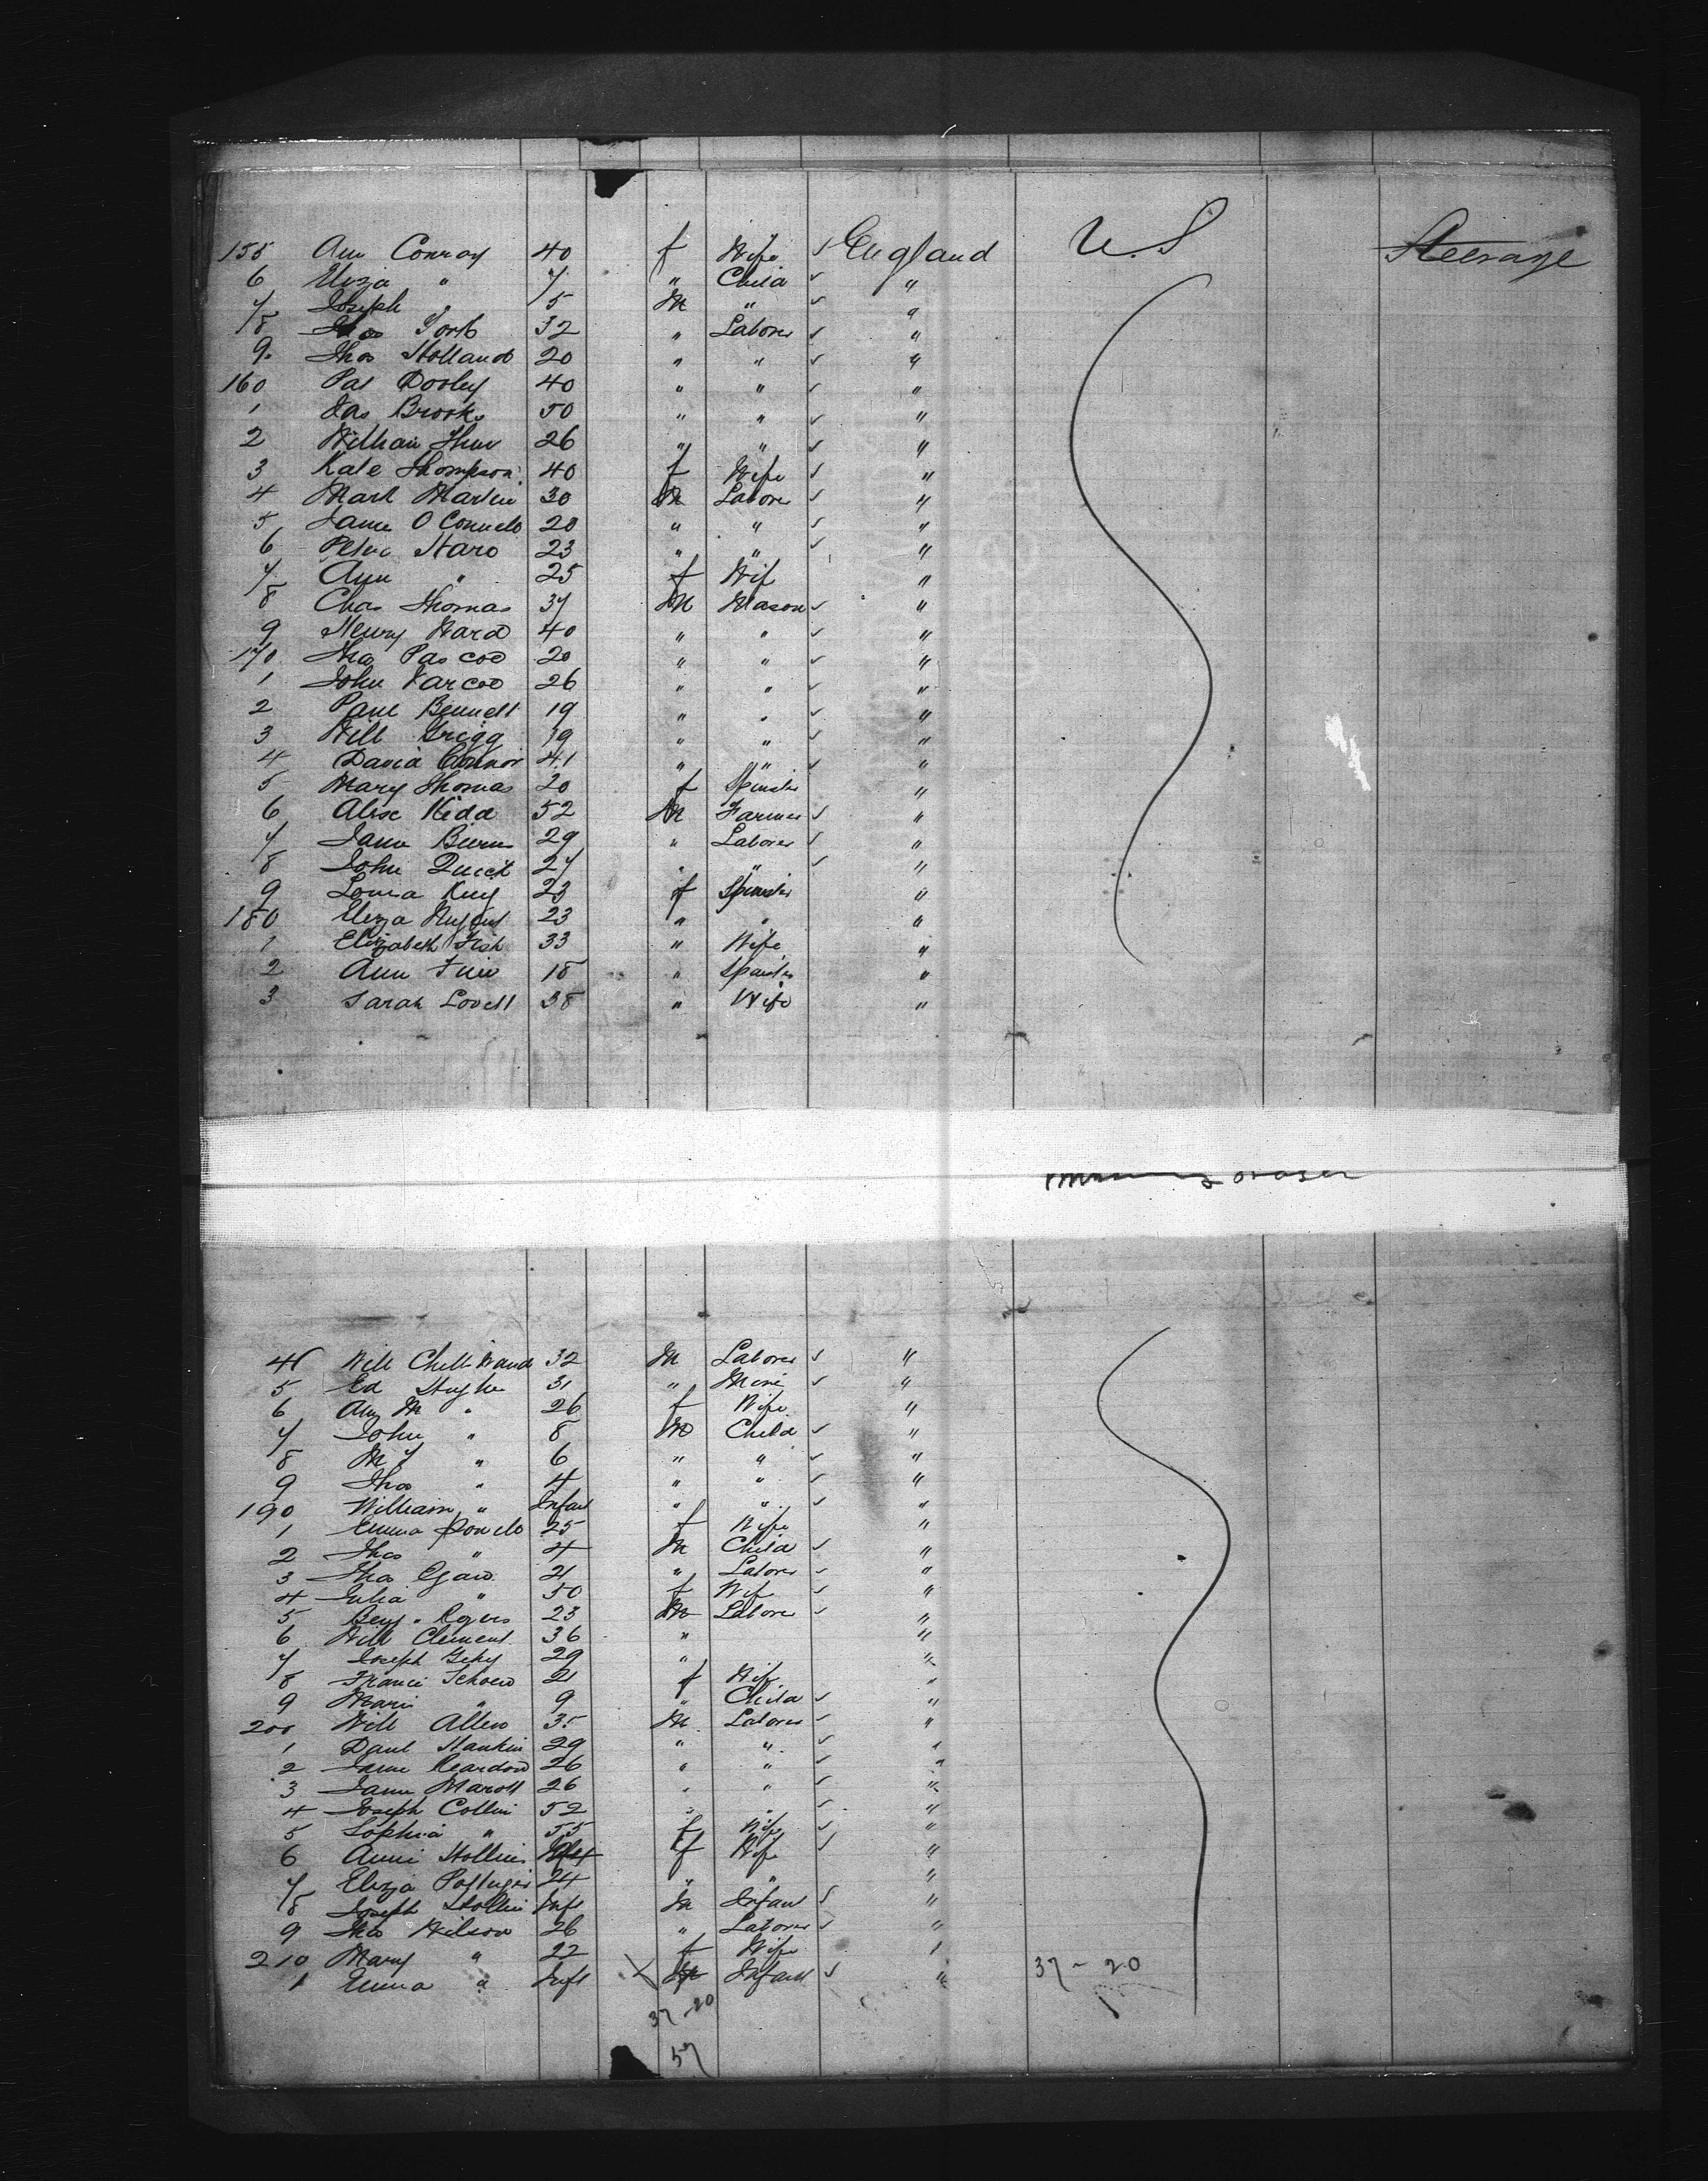 155 Ann Conroy 40 f Wife ✓ England U.S Steerage
6 Eliza " 7 " Child ✓ "
7 Joseph " 5 M " ✓ "
8 Thos York 32 " Laborer ✓ "
9 Thos Holland 20 " " ✓ "
160 Pat Dooley 40 " " ✓ "
1 Jas Brooks 50 " " ✓ "
2 William 26 " " ✓ "
3 Kate Thompson 40 f Wife ✓ "
4 Mark Martin 30 M Labore ✓ "
5 Jame O Connell 20 " " ✓ "
6 Peter 23 " " ✓ "
7 Ann " 25 f Wif "
8 Chas Thomas 37 M Mason ✓ "
9 Henry Ward 40 " " ✓ "
170 Thos Pascoe 20 " " ✓ "
1 John Varcoe 26 " " ✓ "
2 Paul Bennett 19 " " ✓ "
3 Will Grigg 19 " " ✓ "
4 David Connor 41 " " ✓ "
5 Mary Thomas 20 f Spinster "
6 Alex Kidd 52 M Farmer ✓ "
7 Jame 29 " Laborer ✓ "
8 John Quick 27 " " ✓ "
9 Louisa King 23 f Spinster "
180 Eliza Nugent 23 " " "
1 Elizabeth Fish 33 " Wife "
2 Ann 18 " Spinster "
3 Sarah Lovell 38 " Wife "
4 Will 32 M Laborer ✓ "
5 Ed Hughe 31 " Mine ✓ "
6 Amy M " 26 f Wife "
7 John " 8 M Child ✓ "
8 " 6 " " ✓ "
9 Thos " 4 " " ✓ "
190 William " Infant " " ✓ "
1 Emma 25 f Wife "
2 Thos " 4 M Child ✓ "
3 Thos 21 " Laborer ✓ "
4 Julia " 50 f Wif ✓ "
5 Benj. Rogers 23 M Labore ✓ "
6 Will Clement 36 " "
7 Joseph 29 " "
8 21 f Wif "
9 Mari " 9 " Child ✓ "
200 Will Allen 35 M Laborer ✓ "
1 Danl Hankin 29 " " ✓ "
2 Jame Reardon 26 " " ✓ "
3 Jame 26 " " ✓ "
4 Joseph Collin 52 " " ✓ "
5 Sophia " 55 f Wife ✓ "
6 Anni Hollins f Wife ✓ "
7 Eliza 24 " " "
8 Joseph Hollin Inft M Infant ✓ "
9 Thos Wilson 26 " Laborer ✓ "
210 Mary " 22 f Wife "
1 Emma " Inft Infant ✓ " 37-20
37-20
57